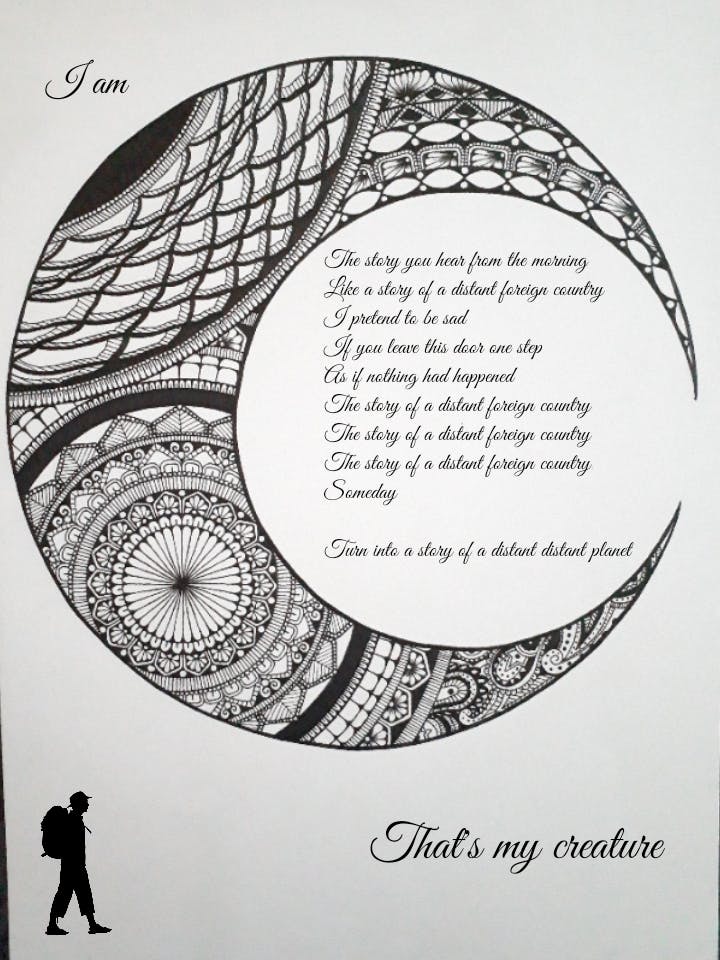 I am
The story you hear from the morning
Like a story of a distant foreign country
I pretend to be sad
If you leave this door one step
As if nothing had happened
The story of a distant foreign country
The story of a distant foreign country
The story of a distant foreign country
Someday
Turn into a story of a distant distant planet
That's my creature